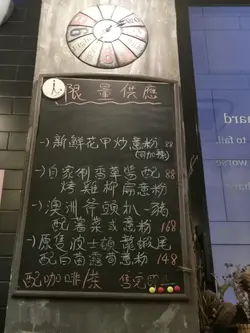 限量供應
-)新鮮花甲炒意粉 88
(可加辣)
-)自家制香草醬配 88
烤雞柳扁意粉
-)澳洲斧頭扒一豬
配薯菜或意粉 168
-)原隻波士頓龍蝦尾
配白菌露筍意粉 148
配咖啡/茶 售完即止
hard
to fail
worse